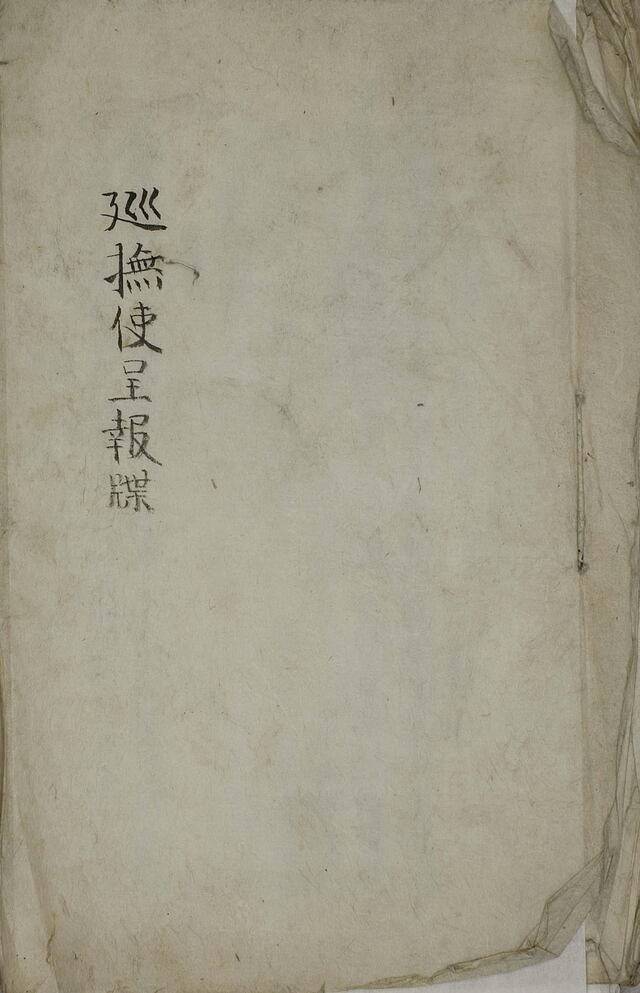 廵撫使呈報牒